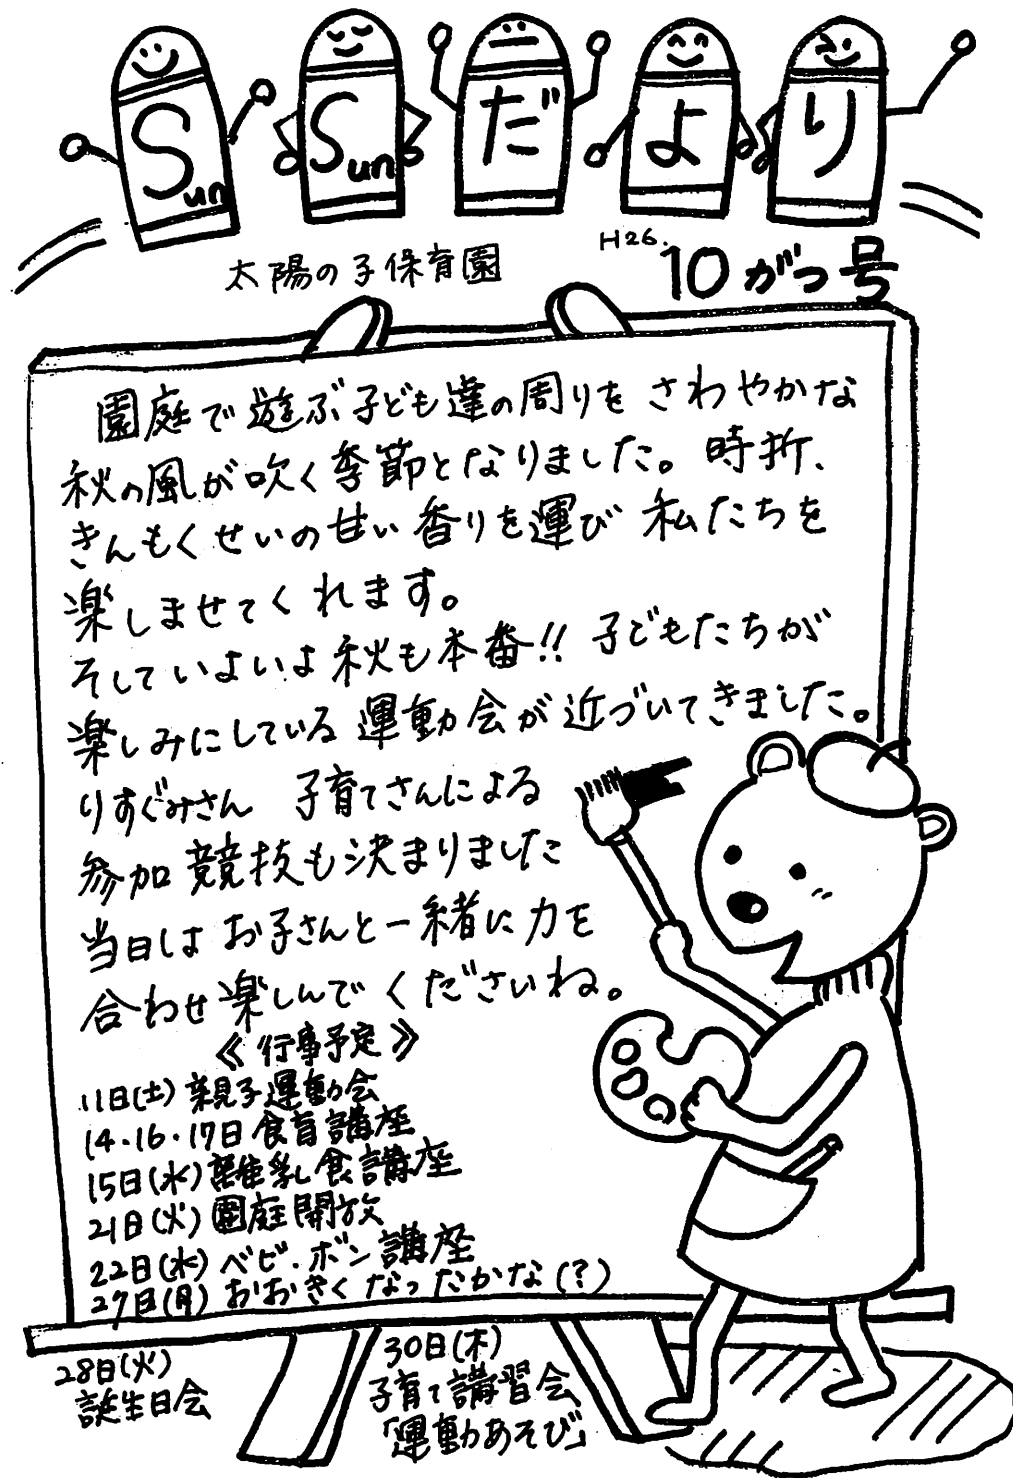 Sun Sun だより
太陽の子保育園
H26. 10がつ号
園庭で遊ぶ子ども達の周りを さわやかな
秋の風が吹く季節となりました。時折、
きんもくせいの甘い香りを運び 私たちを
楽しませてくれます。
そしていよいよ秋も本番!! 子どもたちが
楽しみにしている運動会が近づいてきました。
りすぐみさん 子育てさんによる
参加競技も決まりました
当日は お子さんと一緒に力を
合わせ楽しんでくださいね。
《行事予定》
11日(土) 親子運動会
14・16・17日 食育講座
15日(水) 離乳食講座
21日(火) 園庭開放
22日(水) ベビ・ボン講座
27日(月) おおきくなったかな(?)
28日(火)
誕生日会
30日(木)
子育て講習会
「運動あそび」